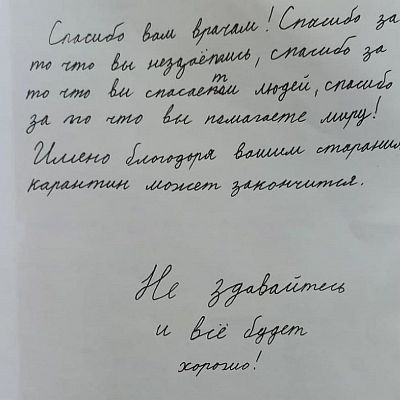 Спасибо вам врачам! Спасибо за
то что вы нездаётись, спасибо за
то что вы спасаетм людей, спасибо
за то что вы памагаете миру!
Имено блогодоря вашим старания
карантин может закончится.
Не здавайтесь
и всё будет
хорошо!